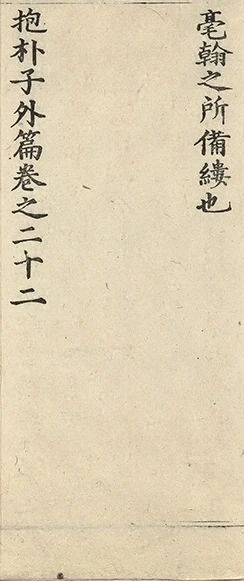 毫翰之所備縷也
抱朴子外篇卷之二十二